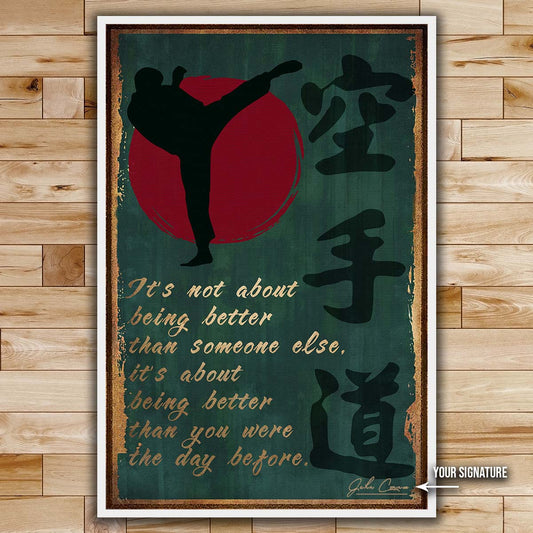 空手道
It's not about
being better
than someone else,
it's about
being better
than you were
the day before.
YOUR SIGNATURE